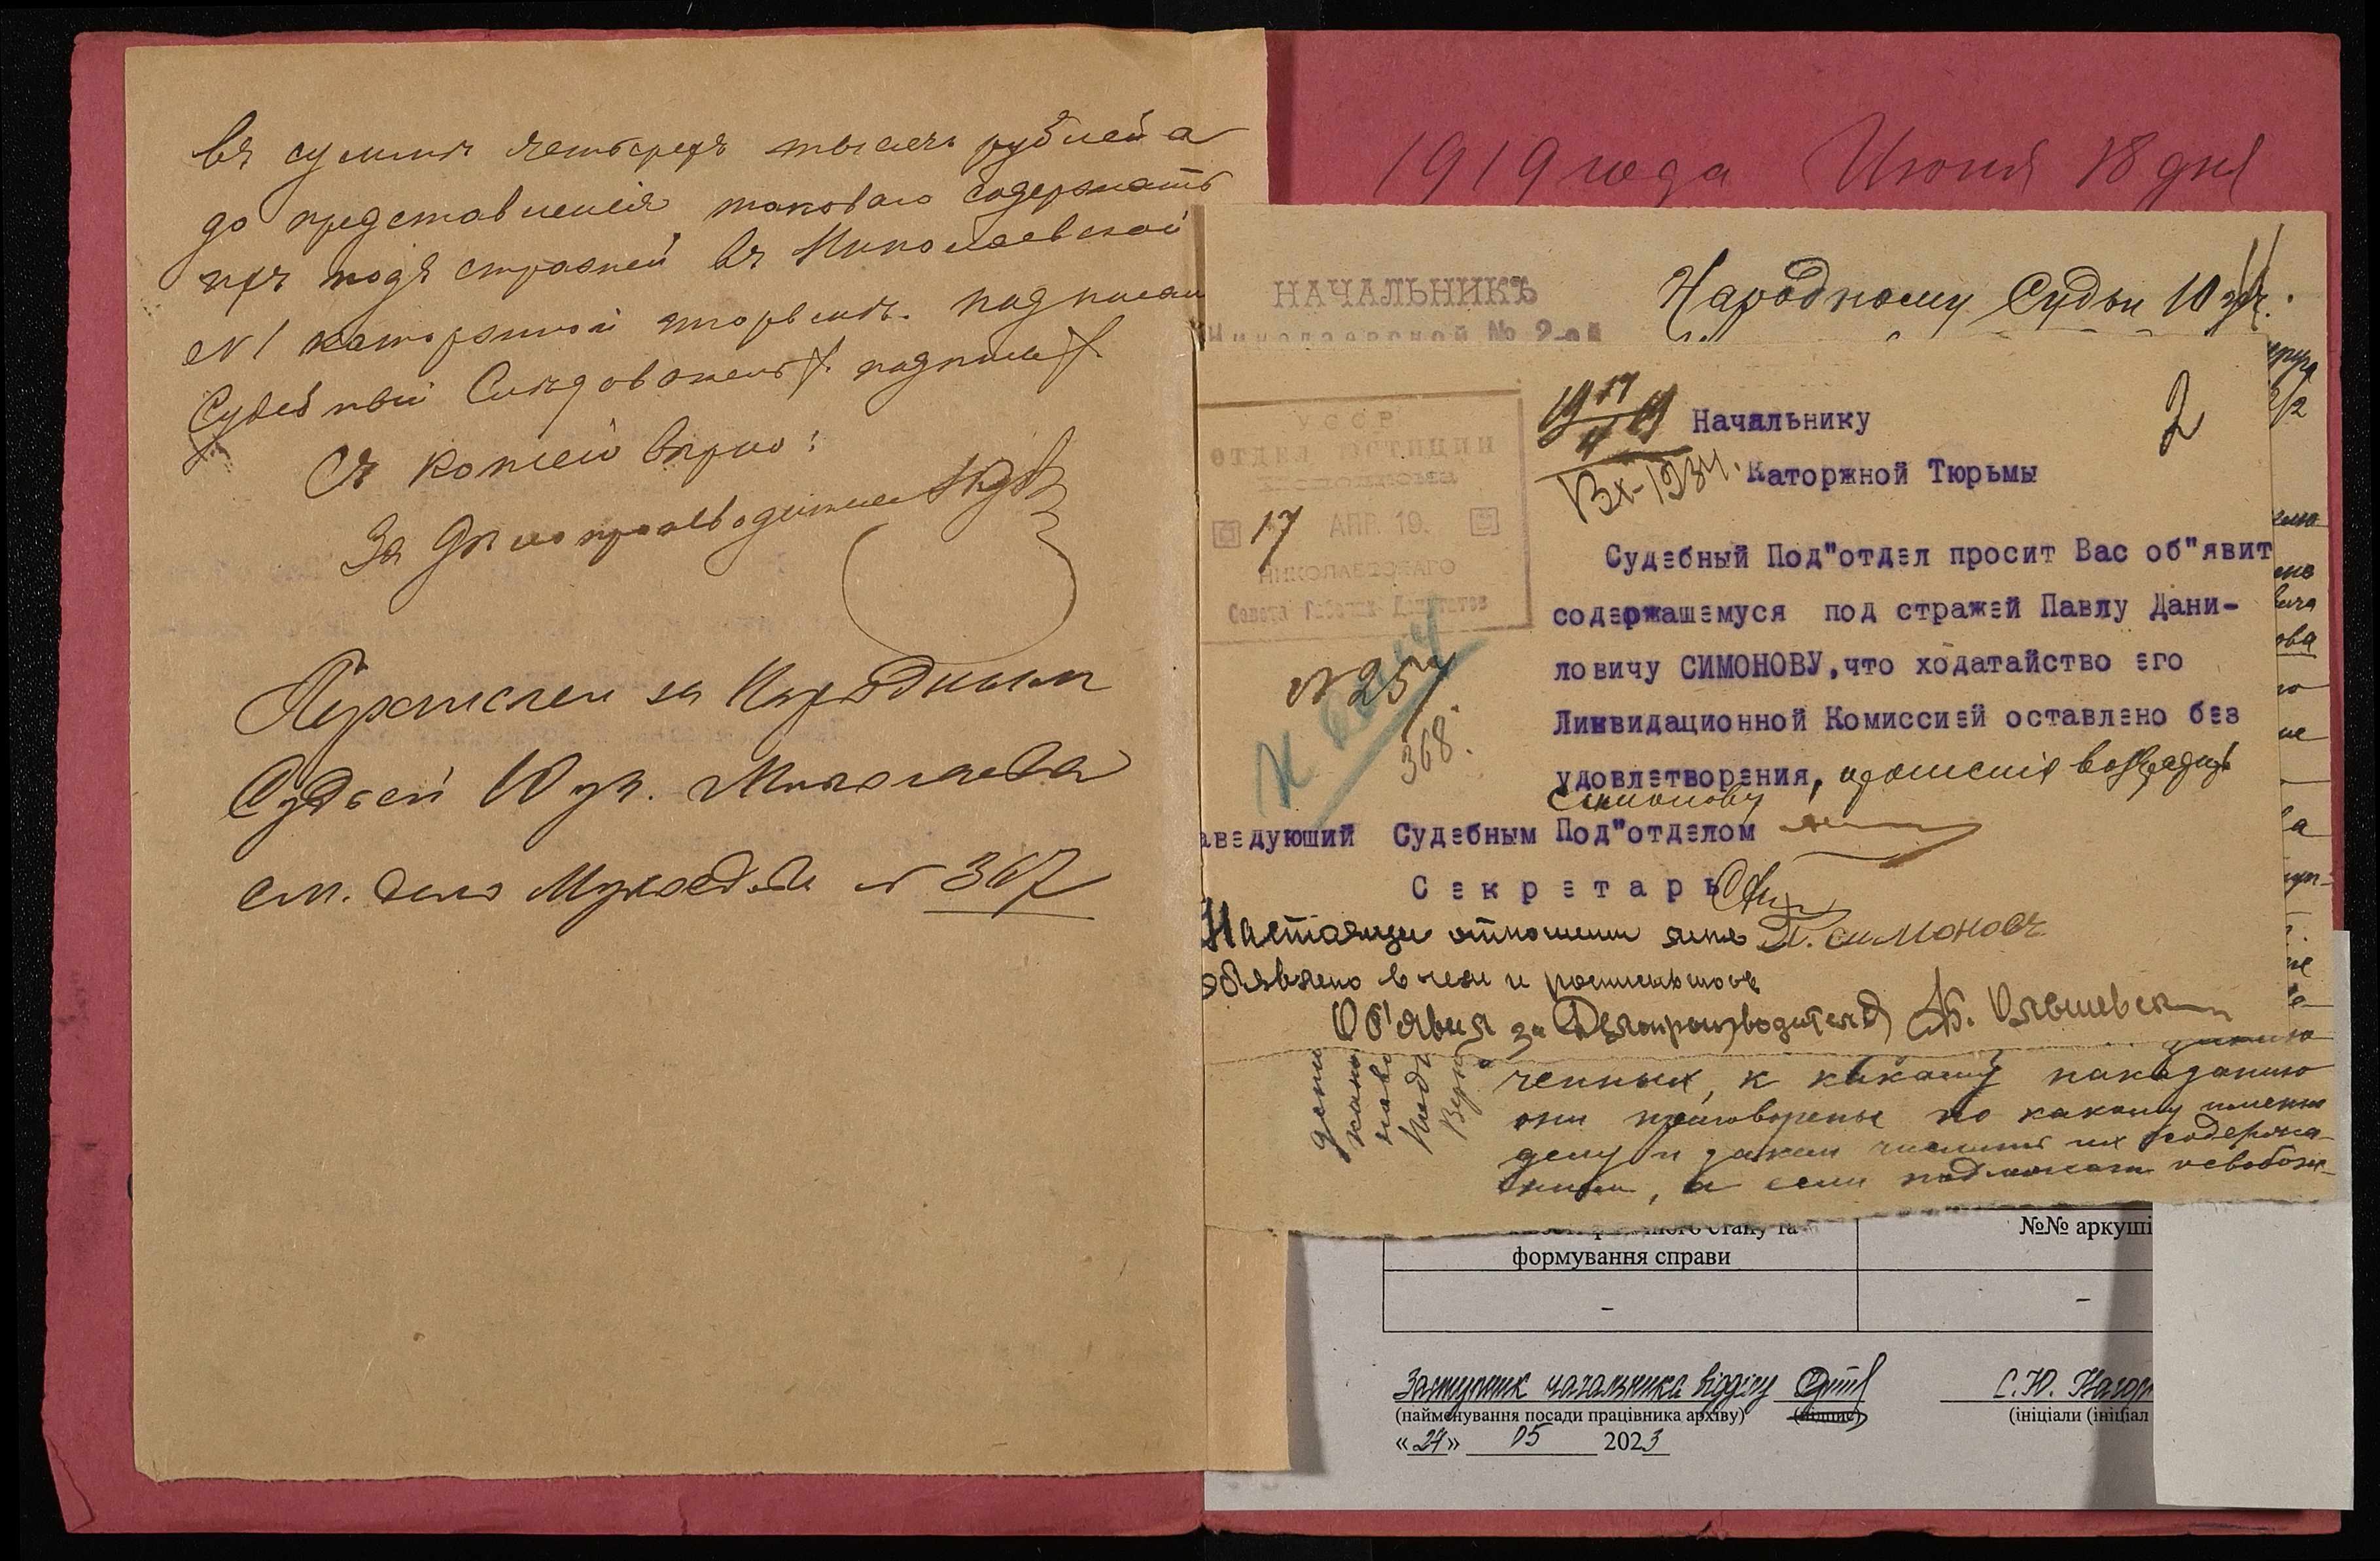 въ суммѣ четырехъ тысячъ рублей а
до представленія таковаго содержать
его подъ стражей въ Николаевской
№ 1 каторжной тюрьмѣ. подписалъ
Судебный Слѣдователь /. подпись /.
Съ копіей вѣрно:
За Дѣлопроизводителя
Перечислен за Народным
Судьей 10 уч. Николаева
см. дело № 367
1919 года Июня 18 дня
НАЧАЛЬНИКЪ
Николаевской № 2-ой
Народному Судьи 10 уч.
УССР
ОТДЕЛ ЮСТИЦИИ
17 АПР. 19.
НИКОЛАЕВСКАГО
Совета Рабочих Депутатов
19 17/4 19
Вх-1934.
2
Начальнику
Каторжной Тюрьмы
Судебный Под"отдел просит Вас об"явит
содержашемуся под стражей Павлу Дани-
ловичу СИМОНОВУ,что ходатайство его
Ликвидационной Комиссией оставлено без
удовлетворения, прошение возвратить
Симонову
№ 254
К делу
368.
аведуюший Судебным Под"отделом
Секретарь
Настоящее отношение мне П. Симоновъ
объявлено в чем и росписываюсь
Об'явил за Делопроизводителя
ченных, к какому наказанию
они приговорены по какому именно
делу и за кем числит их содержа-
нием, а если подлежат освобож-
ного стану та
формування справи
№№ аркуші
-
-
Заступник начальника відділу
С.Ю.
(найменування посади працівника архіву)
(підпис)
(ініціали (ініціал
«24» 05 2023